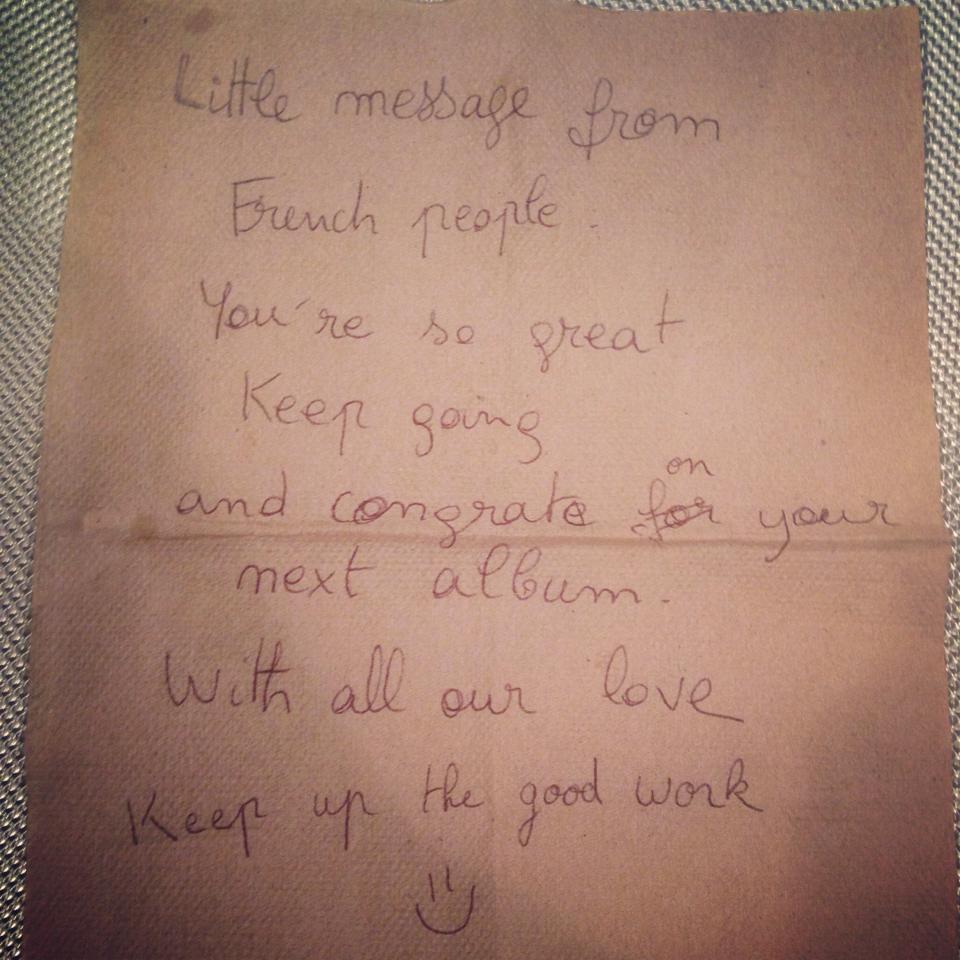 Little message from
French people.
You're so great
Keep going
and congrate on your
next album.
With all our love
Keep up the good work